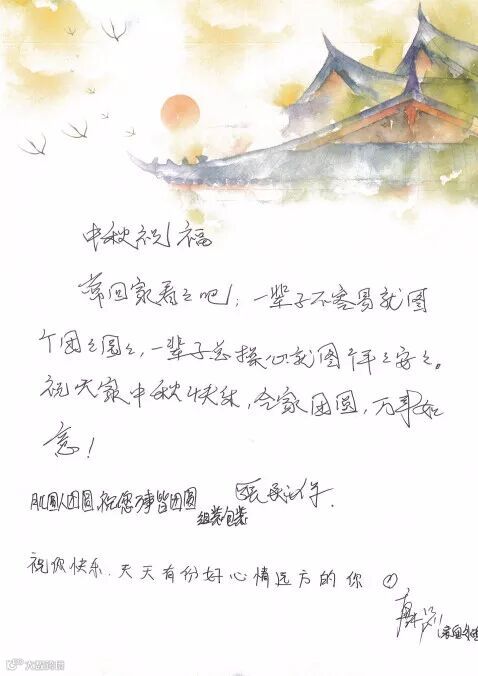 中秋祝福
常回家看々吧！一辈子不容易就图
个团々圆々，一辈子总操心就图个平々安々。
祝大家中秋快乐，合家团圆，万事如
意！
月圆人团圆，祝您事事皆团圆
组装包装
祝你快乐.天天有份好心情远方的你